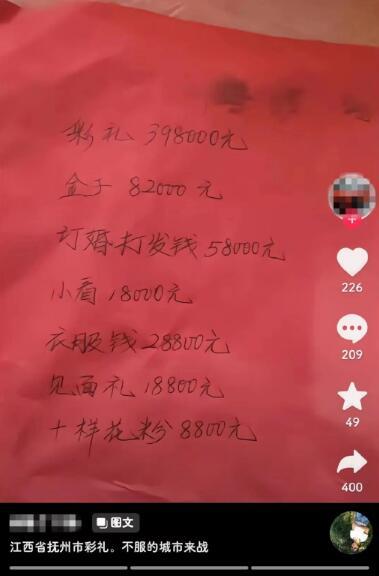 彩礼 398000元
金子 82000元
订婚打发钱 58000元
小看 18000元
衣服钱 28800元
见面礼 18800元
十样花粉 8800元
226
209
49
400
图文
江西省抚州市彩礼。不服的城市来战